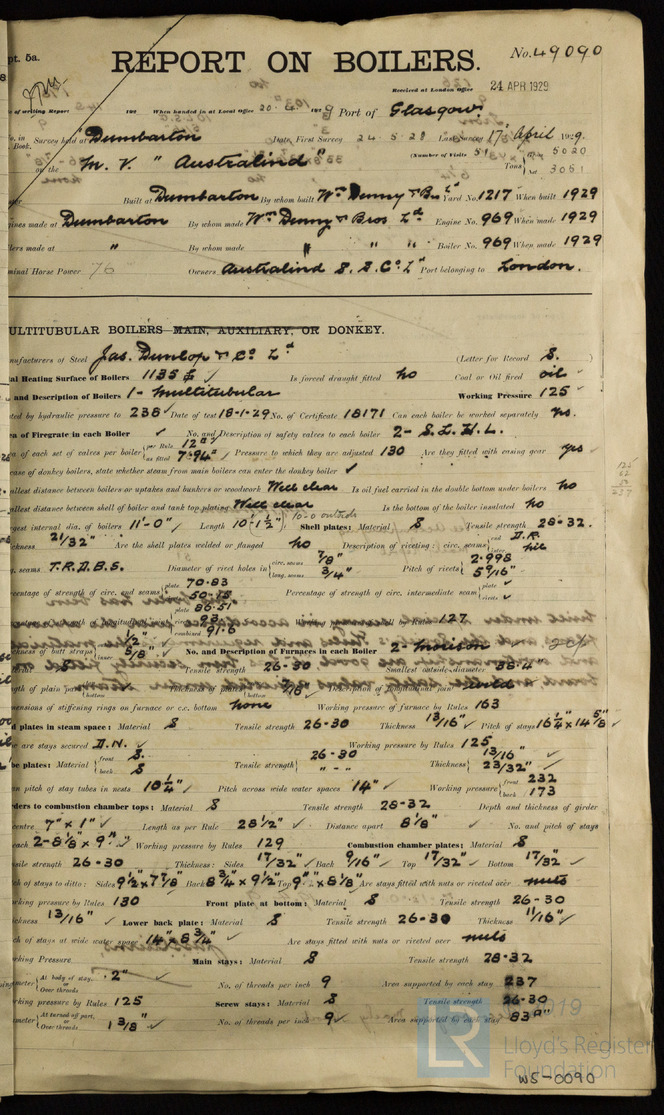 pt. 5a.
REPORT ON BOILERS.
No. 49090
Received at London Office 24 APR 1929
of writing Report 192 When handed in at Local Office 20.4.1929 Port of Glasgow
No. in Survey held at Dumbarton Date, First Survey 24-5-28 Last Survey 17th April 1929.
Book. (Number of Visits 51) Gross 5020
on the M.V. "Australind" Tons Net 3051
Built at Dumbarton By whom built Wm Denny & Bros Ld Yard No. 1217 When built 1929
ngines made at Dumbarton By whom made Wm Denny & Bros Ld Engine No. 969 When made 1929
lers made at " By whom made " " " Boiler No. 969 When made 1929
minal Horse Power 76 Owners Australind S. S. Co Ld Port belonging to London.
ULTITUBULAR BOILERS MAIN, AUXILIARY, OR DONKEY.
nufacturers of Steel Jas. Dunlop & Co Ld (Letter for Record S.)
al Heating Surface of Boilers 1135 ✓ Is forced draught fitted no Coal or Oil fired oil ✓
and Description of Boilers 1- Multitubular Working Pressure 125 ✓
ted by hydraulic pressure to 238 ✓ Date of test 18-1-29 No. of Certificate 18171 Can each boiler be worked separately yes.
ea of Firegrate in each Boiler ✓ No. and Description of safety valves to each boiler 2- S.L.H.L.
a of each set of valves per boiler per Rule 12
as fitted 7.94" ✓ Pressure to which they are adjusted 130 Are they fitted with easing gear yes ✓
case of donkey boilers, state whether steam from main boilers can enter the donkey boiler ✓
allest distance between boilers or uptakes and bunkers or woodwork Well clear Is oil fuel carried in the double bottom under boilers no
allest distance between shell of boiler and tank top plating Well clear Is the bottom of the boiler insulated no
rgest internal dia. of boilers 11'-0" ✓ Length 10'-1½" Shell plates: Material S Tensile strength 28-32.
ckness 21/32" ✓ Are the shell plates welded or flanged no Description of riveting: circ. seams end D.R.
g. seams T.R.D.B.S. Diameter of rivet holes in circ. seams 7/8" long. seams 3/4" ✓ Pitch of rivets 2.998 5 9/16" ✓
rcentage of strength of circ. end seams plate 70.83 Percentage of strength of circ. intermediate seam
plate 86.51
127
combined 91.6
ckness of butt straps No. and Description of Furnaces in each Boiler 2- Morison ✓
Tensile strength 26-30 Smallest outside diameter
mensions of stiffening rings on furnace or c.c. bottom none Working pressure of furnace by Rules 163
d plates in steam space: Material S Tensile strength 26-30 Thickness 13/16" ✓ Pitch of stays 16¼" x 14⅝" ✓
w are stays secured D.N. ✓ Working pressure by Rules 125
be plates: Material front S. back S Tensile strength 26-30 " - " Thickness 13/16" ✓ 23/32" ✓
an pitch of stay tubes in nests 10¼" ✓ Pitch across wide water spaces 14" ✓ Working pressure front 232 back 173
ders to combustion chamber tops: Material S Tensile strength 28-32 Depth and thickness of girder
centre 7" x 1" ✓ Length as per Rule 28½" ✓ Distance apart 8⅛" ✓ No. and pitch of stays
each 2-8⅛" x 9" ✓ Working pressure by Rules 129 Combustion chamber plates: Material S
sile strength 26-30 Thickness: Sides 17/32" ✓ Back 9/16" ✓ Top 17/32" ✓ Bottom 17/32" ✓
ch of stays to ditto: Sides 9½" x 7⅞" Back 8¾" x 9½" Top 9" x 8⅛" Are stays fitted with nuts or riveted over nuts
rking pressure by Rules 130 Front plate at bottom: Material S Tensile strength 26-30
ckness 13/16" ✓ Lower back plate: Material S Tensile strength 26-30 Thickness 11/16" ✓
ch of stays at wide water space 14" x 8¾" ✓ Are stays fitted with nuts or riveted over nuts
rking Pressure Main stays: Material S Tensile strength 28-32
ameter At body of stay, 2" ✓ or Over threads No. of threads per inch 9 Area supported by each stay 237
rking pressure by Rules 125 Screw stays: Material S Tensile strength 26-30
ameter At turned off part, or Over threads 1⅜" ✓ No. of threads per inch 9 ✓ Area supported by each stay 83"
© 2019
LR
Lloyd's Register
Foundation
W5-0090